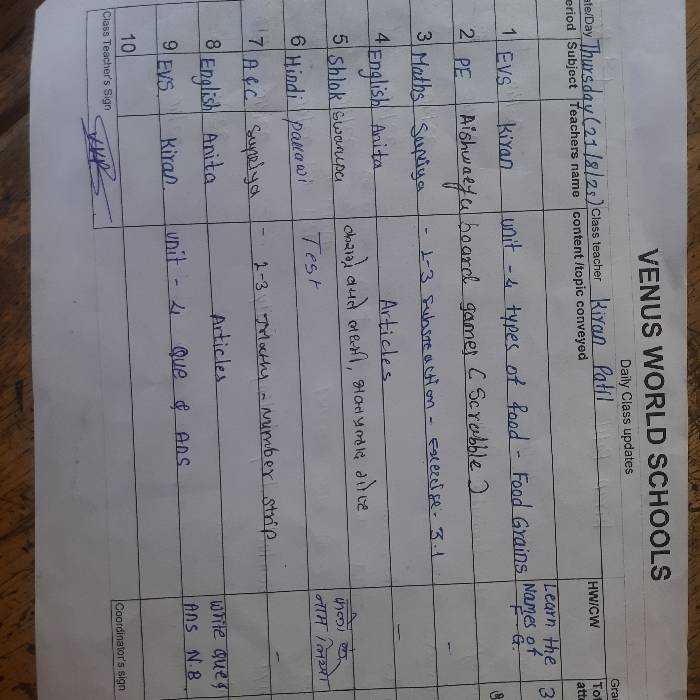 VENUS WORLD SCHOOLS
Daily Class updates
ate/Day Thursday (21/8/25) Class teacher Kiran Patil Gra
eriod Subject Teachers name content /topic conveyed HW/CW Tot att
1 EVS Kiran unit - 4 types of food - Food Grains Learn the Names of F. G. 3
2 PE board games (Scrabble)
3 Maths - 2-3 Subtraction - Exercise - 3.1 -
4 English Anita Articles -
5 Shlok Swarupa
6 Hindi Test
7 Supriya - 2-3 - Number strip -
8 English Anita Articles write ques Ans N.B.
9 EVS Kiran. unit - 4 Que & Ans
10
Class Teacher's Sign Coordinator's sign